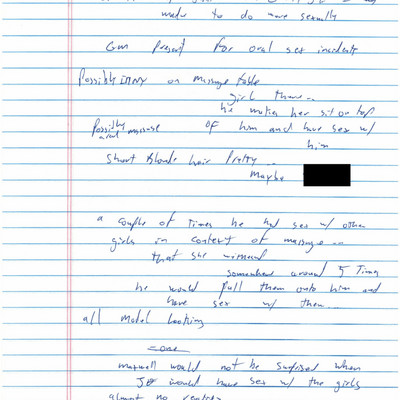 made to do more sexually
Gm present for oral sex incidents
Possibly on massage table
girl there..
he makes her sit on top
Possibly massage of him and have sex w/
him
Short Blonde hair Pretty..
Maybe
a couple of times he had sex w/ other
girls in context of massage..
that she witnessed
somewhere around 5 Times
he would pull them onto him and
have sex w/ them..
all Model looking
maxwell would not be surprised when
JE would have sex w/ the girls
almost no